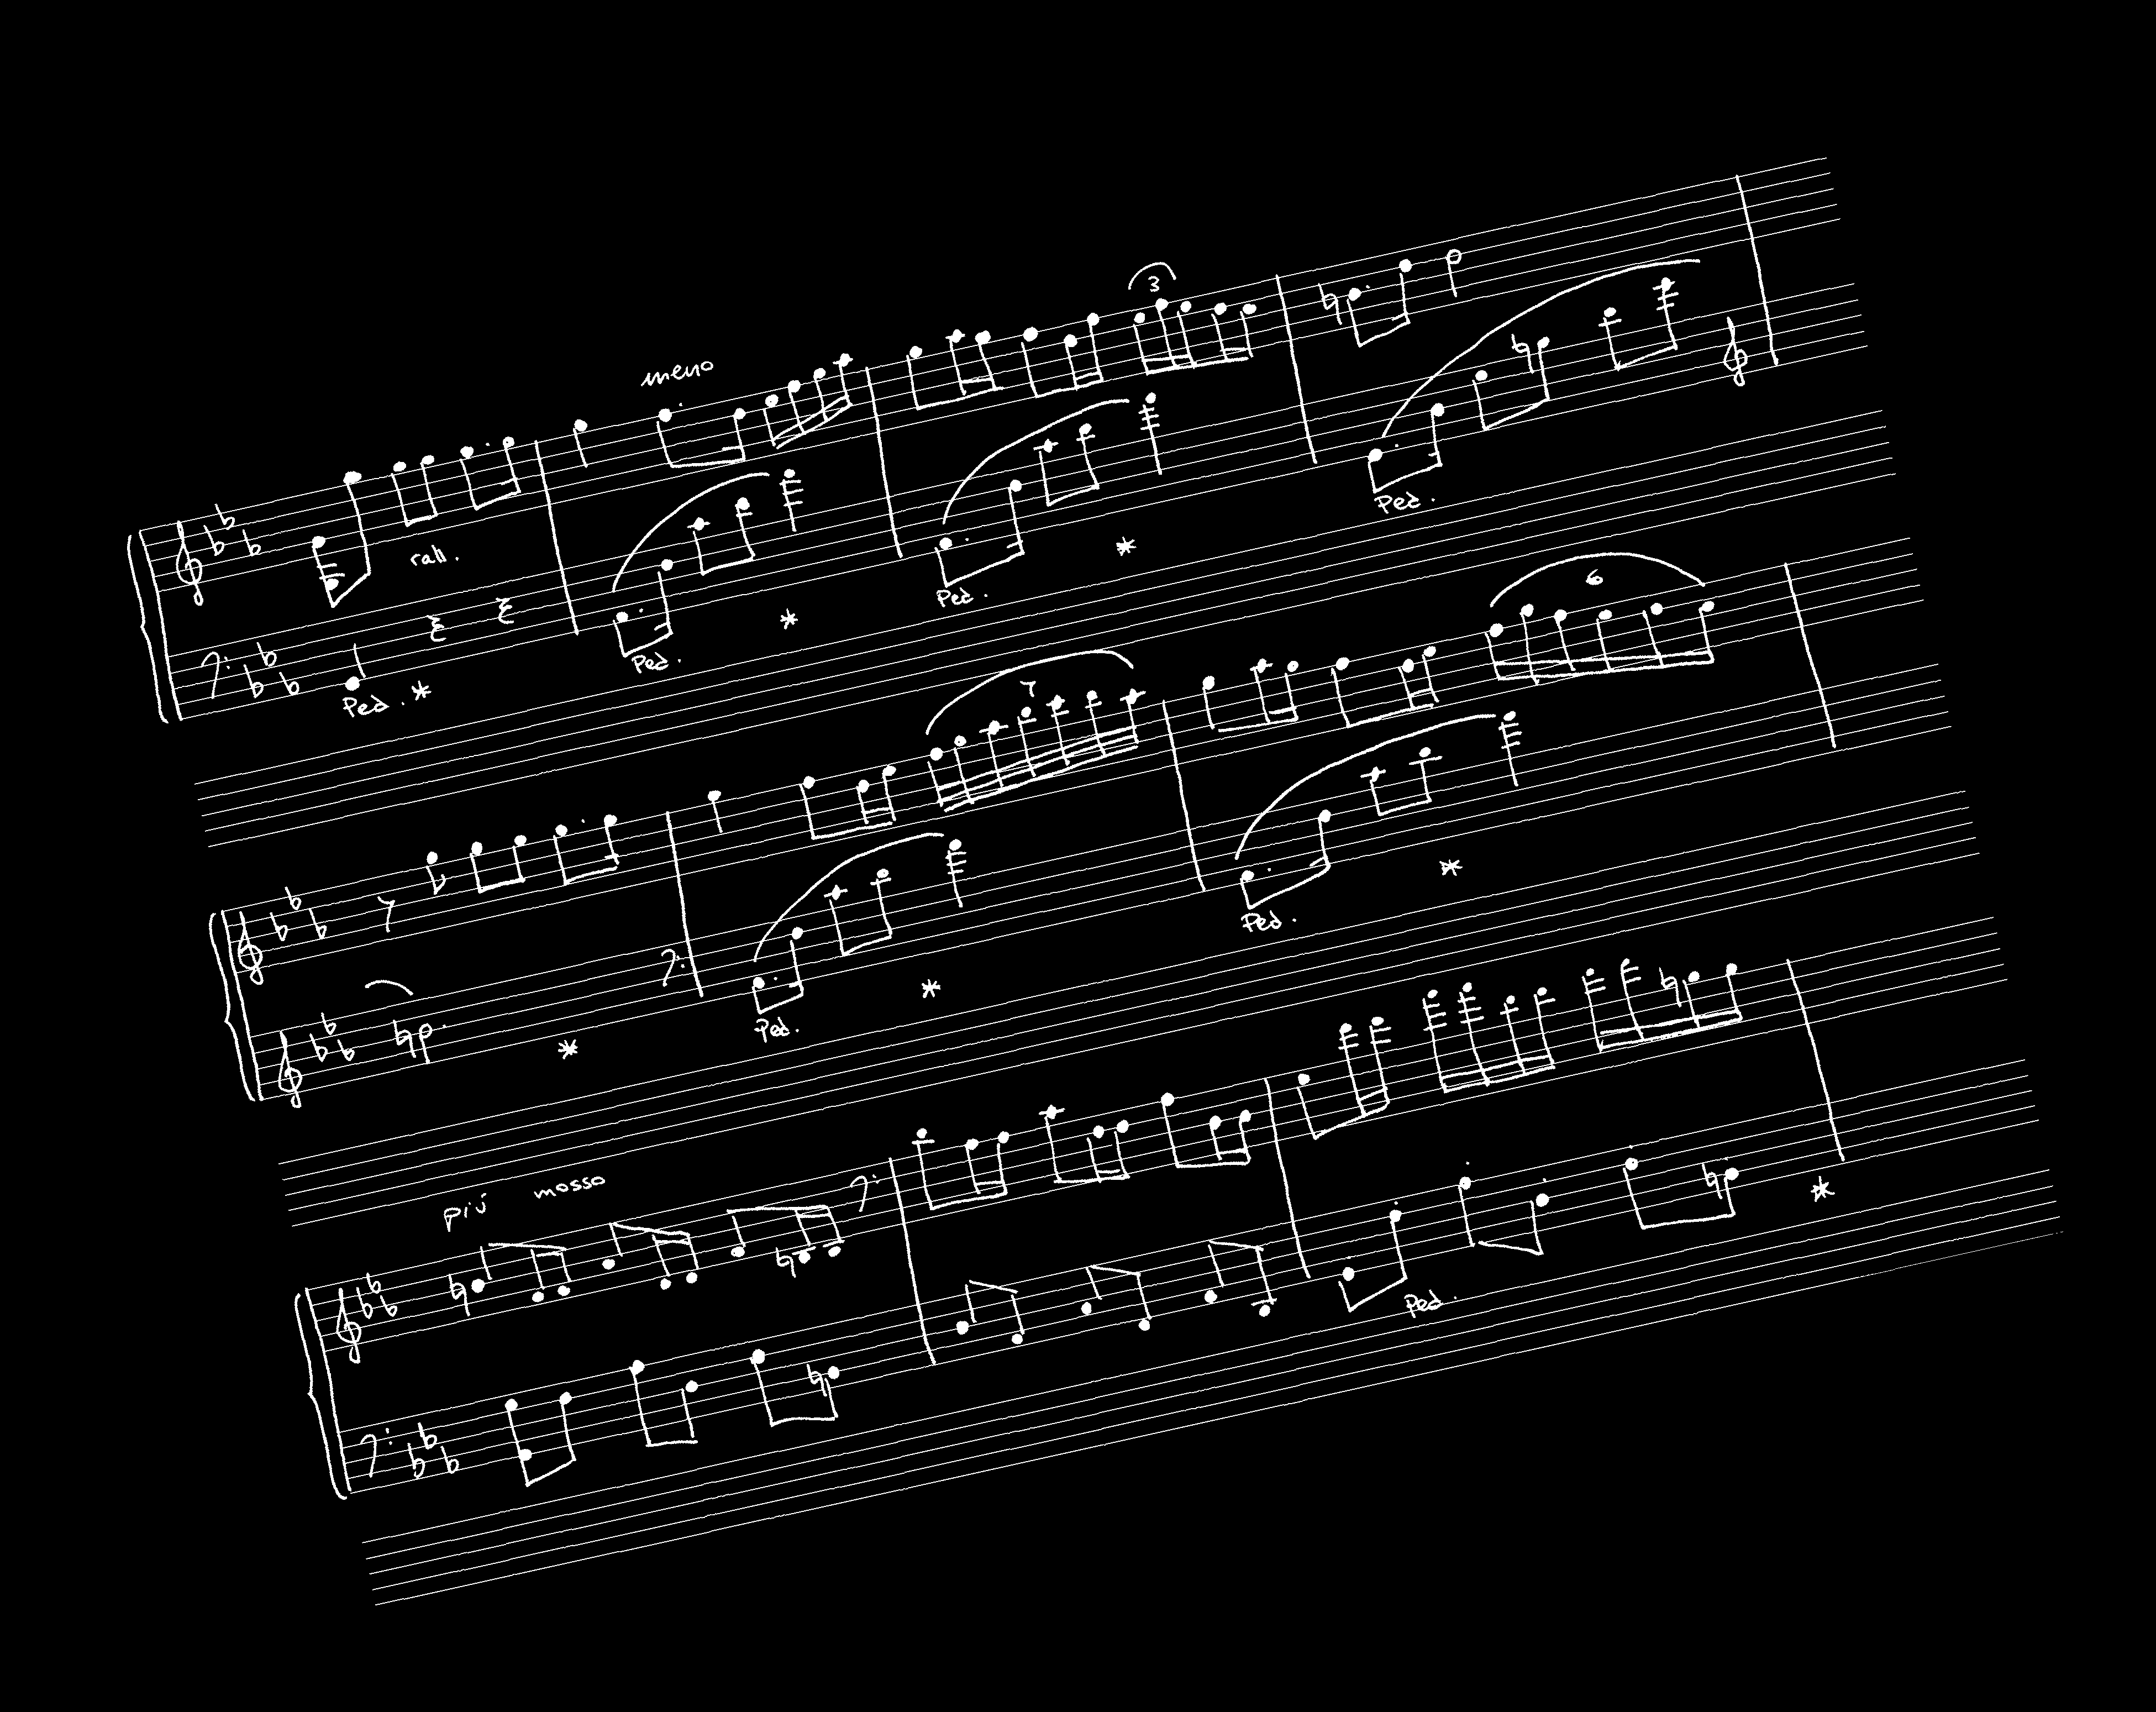 meno
3
rall.
Ped. * Ped. * Ped. * Ped.
7 6
* Ped. * Ped. *
più mosso
Ped. *